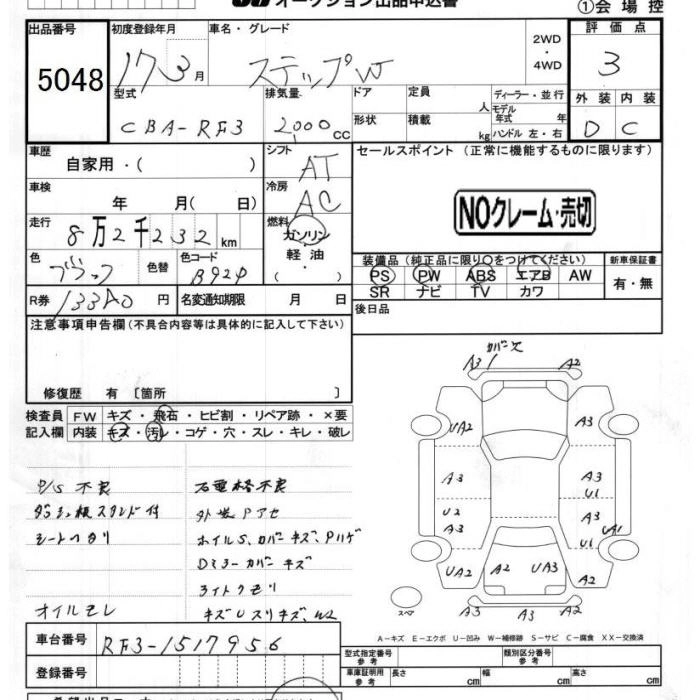 オークション出品申込書
①会場控
出品番号 5048
初度登録年月 17 3月
車名・グレード ステップW
2WD・4WD
評価点 3
型式 CBA-RF3
排気量 2,000cc
ドア 形状
定員 人
積載 kg
ディーラー・並行
モデル年式 年
ハンドル 左・右
外装 D 内装 C
車歴 自家用・( )
シフト AT
車検 年 月( 日)
冷房 AC
セールスポイント (正常に機能するものに限ります)
NOクレーム・売切
走行 8万2千232km
燃料 ガソリン・軽油・( )
色 ブラック 色替 色コード B92P
装備品 (純正品に限り○をつけてください)
PS PW ABS エアB AW
SR ナビ TV カワ
新車保証書 有・無
R券 133A0円
名変通知期限 月 日
後日品
注意事項申告欄(不具合内容等は具体的に記入して下さい)
修復歴 有 〔箇所 〕
検査員記入欄
FW キズ・飛石・ヒビ割・リペア跡・×要
内装 キズ・汚レ・コゲ・穴・スレ・キレ・破レ
P/S 不良
ダッシュ板スタンド付
オイルモレ
右電格不良
外装Pアセ
ホイルS、カバーキズ、Pハゲ
Dミラーカバーキズ
ライトクモリ
カバー欠
A3 A2
UA2 A3
A3 A3
U1
U2 A3
A3 UA1
U1
UA2 A2 UA3 A2
スペア A2 A3 A2
A-キズ E-エクボ U-凹み W-補修跡 S-サビ C-腐食 XX-交換済
車台番号 RF3-1517956
登録番号
型式指定番号 参考
類別区分番号 参考
車庫証明用 参考 長さ cm 幅 cm 高さ cm